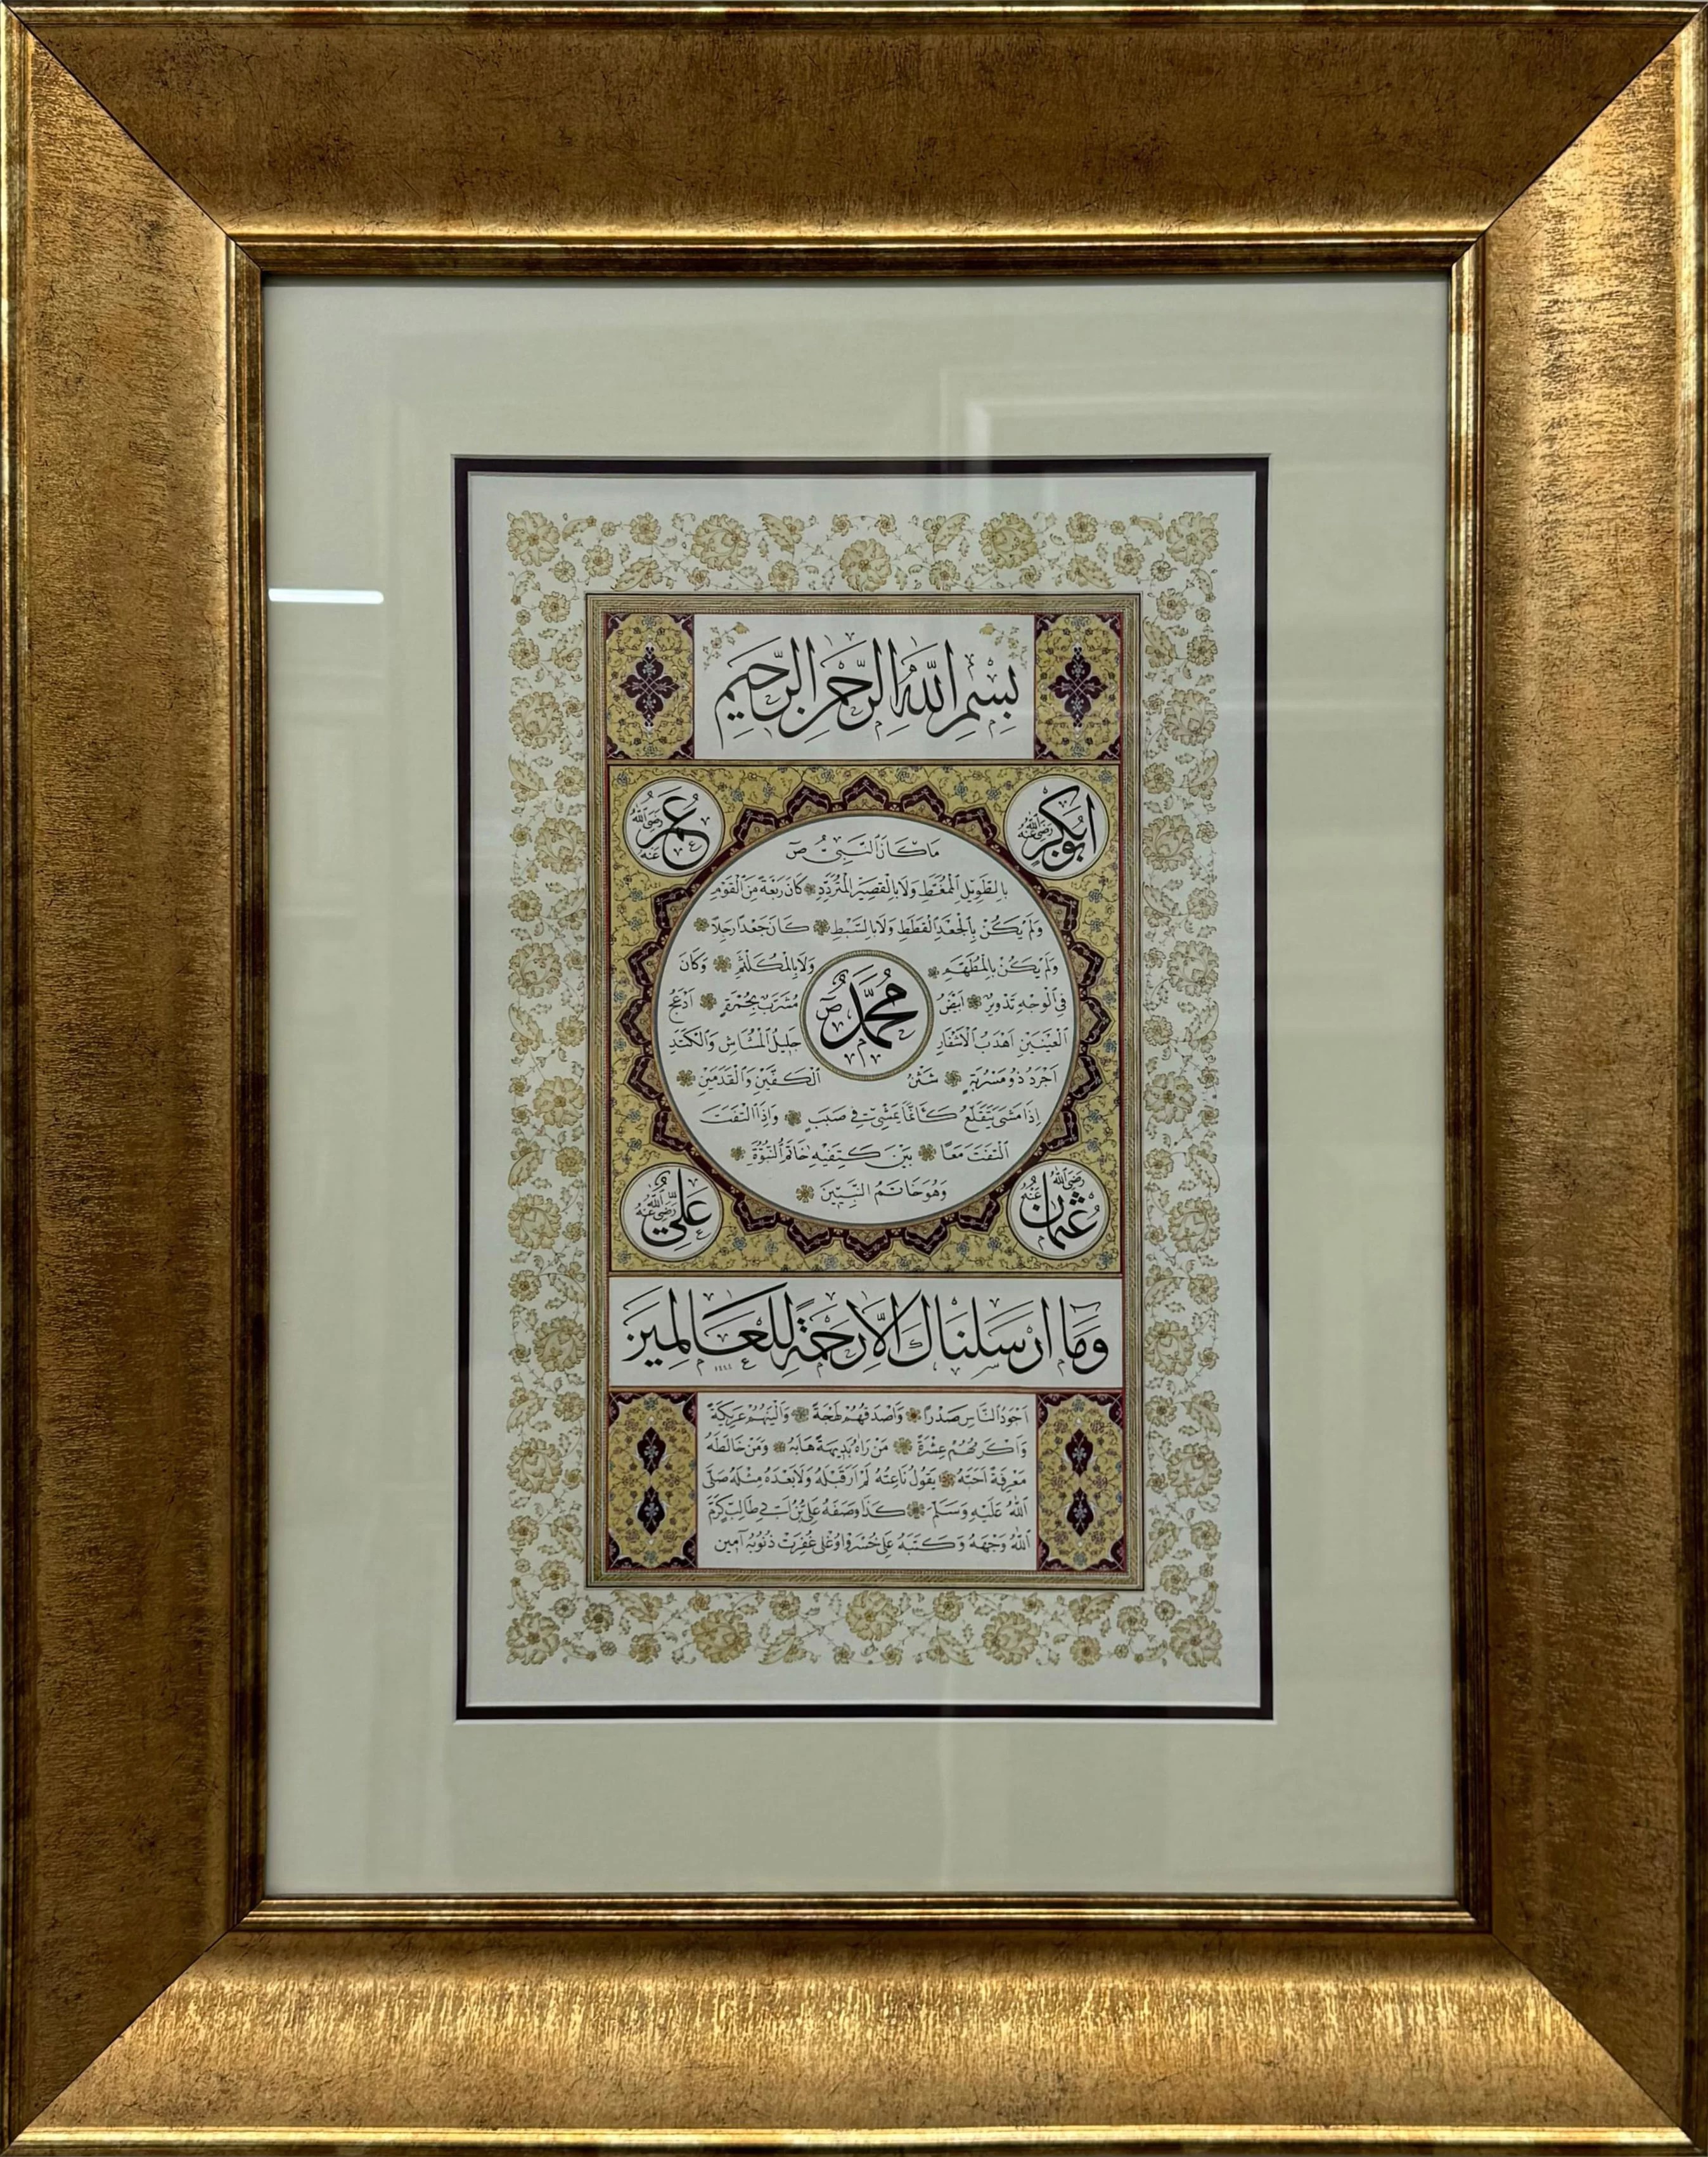 بِسْمِ اللّٰهِ الرَّحْمٰنِ الرَّحِيمِ
اَبُو بَكْر رَضِيَ اللّٰهُ عَنْهُ
عُمَر رَضِيَ اللّٰهُ عَنْهُ
مَا كَانَ النَّبِيُّ ص
بِالطَّوِيلِ الْمُمَّغِطِ وَلَا بِالْقَصِيرِ الْمُتَرَدِّدِ كَانَ رَبْعَةً مِنَ الْقَوْمِ
وَلَمْ يَكُنْ بِالْجَعْدِ الْقَطَطِ وَلَا بِالسَّبْطِ كَانَ جَعْدًا رَجِلًا
وَلَمْ يَكُنْ بِالْمُطَهَّمِ وَلَا بِالْمُكَلْثَمِ وَكَانَ
فِي الْوَجْهِ تَدْوِيرٌ اَبْيَضُ مُشْرَبٌ بِحُمْرَةٍ اَدْعَجُ
الْعَيْنَيْنِ اَهْدَبُ الْاَشْفَارِ جَلِيلُ الْمُشَاشِ وَالْكَتَدِ
اَجْرَدُ ذُو مَسْرُبَةٍ شَثْنُ الْكَفَّيْنِ وَالْقَدَمَيْنِ
اِذَا مَشٰى يَتَقَلَّعُ كَاَنَّمَا يَمْشِي فِي صَبَبٍ وَاِذَا الْتَفَتَ
الْتَفَتَ مَعًا بَيْنَ كَتِفَيْهِ خَاتَمُ النُّبُوَّةِ
وَهُوَ خَاتَمُ النَّبِيِّينَ
مُحَمَّد ص
عُثْمَان رَضِيَ اللّٰهُ عَنْهُ
عَلِي رَضِيَ اللّٰهُ عَنْهُ
وَمَا اَرْسَلْنَاكَ اِلَّا رَحْمَةً لِلْعَالَمِينَ
اَجْوَدُ النَّاسِ صَدْرًا وَاَصْدَقُهُمْ لَهْجَةً وَاَلْيَنُهُمْ عَرِيكَةً
وَاَكْرَمُهُمْ عِشْرَةً مَنْ رَاٰهُ بَدِيهَةً هَابَهُ وَمَنْ خَالَطَهُ
مَعْرِفَةً اَحَبَّهُ يَقُولُ نَاعِتُهُ لَمْ اَرَ قَبْلَهُ وَلَا بَعْدَهُ مِثْلَهُ صَلَّى
اللّٰهُ عَلَيْهِ وَسَلَّمَ كَذَا وَصَفَهُ عَلِيُّ بْنُ اَبِي طَالِبٍ كَرَّمَ
اللّٰهُ وَجْهَهُ وَكَتَبَهُ عَلِي خُسْرَوْ اوغلى غُفِرَتْ ذُنُوبُهُ اٰمِين